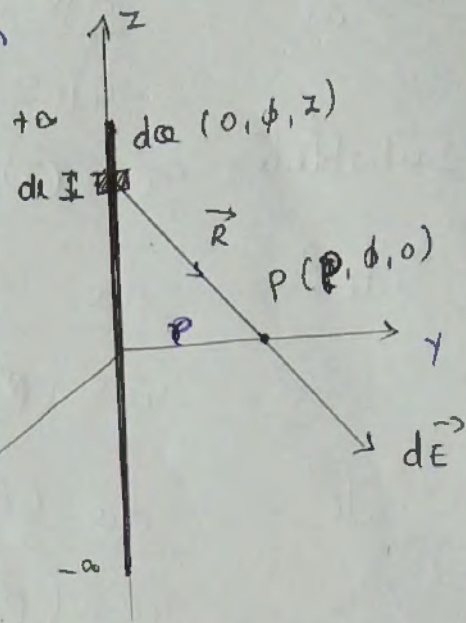 z
+∞
dQ (0, ϕ, z)
dl
R
P (ρ, ϕ, 0)
ρ
y
dE
-∞